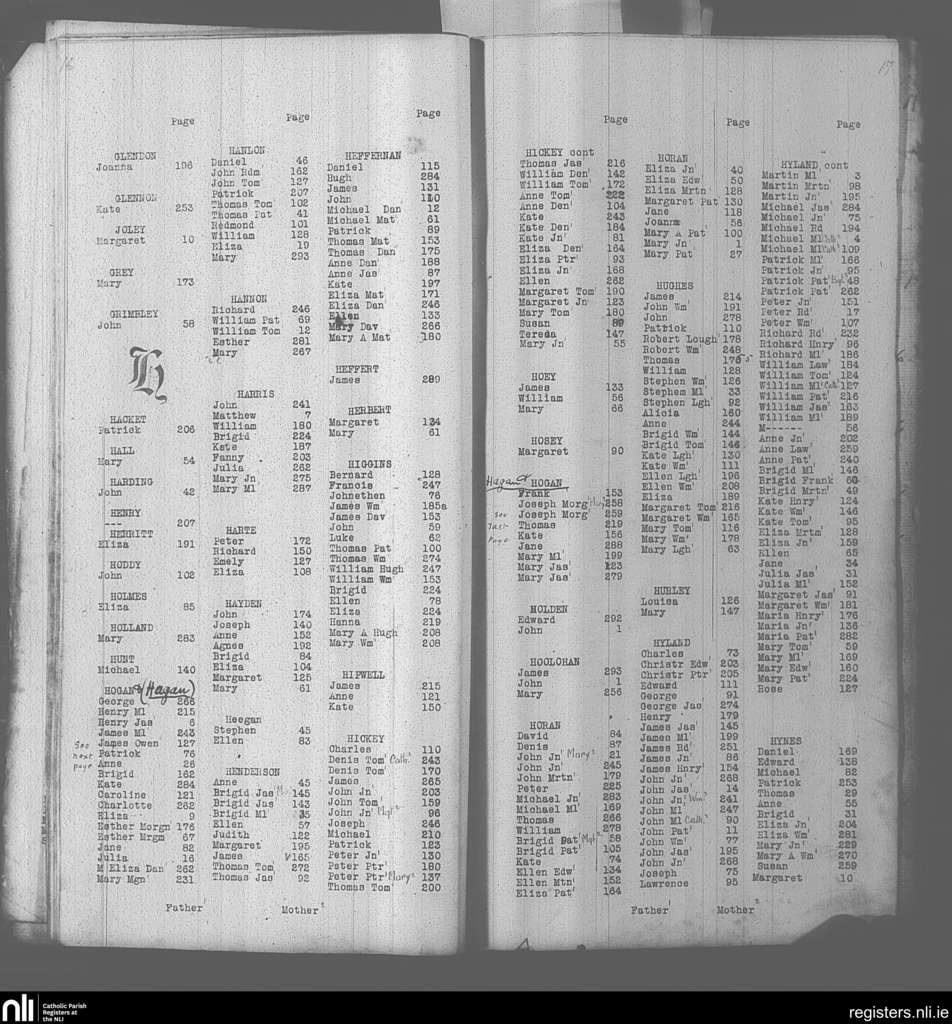 16
Page
GLENDON
Joanna 196
GLENNON
Kate 253
JOLEY
Margaret 10
GREY
Mary 173
GRIMBLEY
John 58
H
HACKET
Patrick 206
HALL
Mary 54
HARDING
John 42
HENRY
--- 207
HERRITT
Eliza 191
HODDY
John 102
HOLMES
Eliza 85
HOLLAND
Mary 283
HUNT
Michael 140
HOGAN & (Hagan)
George 266
Henry Ml 215
Henry Jas 6
James Ml 243
James Owen 127
See next page
Patrick 76
Anne 26
Brigid 162
Kate 284
Caroline 121
Charlotte 262
Eliza 9
Esther Morgn 176
Esther Mrgm 67
Jane 82
Julia 16
M Eliza Dan 262
Mary Mgn 231
Page
HANLON
Daniel 46
John Rdm 162
John Tom' 127
Patrick 207
Thomas Tom' 102
Thomas Pat 41
Redmond 101
William 128
Eliza 19
Mary 293
HANNON
Richard 246
William Pat 69
William Tom 12
Esther 281
Mary 267
HARRIS
John 241
Matthew 7
William 180
Brigid 224
Kate 187
Fanny 203
Julia 262
Mary Jn 275
Mary Ml 287
HARTE
Peter 172
Richard 150
Emely 127
Eliza 108
HAYDEN
John 174
Joseph 140
Anne 152
Agnes 192
Brigid 84
Eliza 104
Margaret 125
Mary 61
Heegan
Stephen 45
Ellen 83
HENDERSON
Anne 45
Brigid Jas' 145
Brigid Jas' 143
Brigid Ml 35
Ellen 57
Judith 122
Margaret 195
James 165
Thomas Tom' 272
Thomas Jas' 92
Page
HEFFERNAN
Daniel 115
Hugh 284
James 131
John 110
Michael Dan 12
Michael Mat 61
Patrick 89
Thomas Mat 153
Thomas Dan 175
Anne Dan' 188
Anne Jas' 87
Kate 197
Eliza Mat 171
Eliza Dan 246
Ellen 133
Mary Dav 266
Mary A Mat 180
HEFFERT
James 289
HERBERT
Margaret 134
Mary 61
HIGGINS
Bernard 128
Francis 247
Johnethen 76
James Wm 185a
James Dav 153
John 59
Luke 62
Thomas Pat 100
Thomas Wm 274
William Hugh 247
William Wm' 153
Brigid 224
Ellen 78
Eliza 224
Hanna 219
Mary A Hugh 208
Mary Wm' 208
HIPWELL
James 215
Anne 121
Kate 150
HICKEY
Charles 110
Denis Tom' Cath² 243
Denis Tom' 170
James 265
John Jn' 203
John Tom' 159
John Jn' Mgt² 96
Joseph 246
Michael 210
Patrick 123
Peter Jn' 130
Peter Ptr' 180
Peter Ptr' Mary² 137
Thomas Tom' 200
Father' Mother²
17
Page
HICKEY cont
Thomas Jas 216
William Den' 142
William Tom' 172
Anne Tom' 222
Anne Den' 104
Kate 243
Kate Den' 184
Kate Jn' 81
Eliza Den' 164
Eliza Ptr' 93
Eliza Jn' 168
Ellen 262
Margaret Tom' 190
Margaret Jn' 123
Mary Tom' 180
Susan 89
Teresa 147
Mary Jn' 55
HOEY
James 133
William 56
Mary 66
HOSEY
Margaret 90
Hagan & HOGAN
Frank 153
Joseph Morg' 258
Joseph Morg' 259
See last page
Thomas 219
Kate 156
Jane 288
Mary Ml' 199
Mary Jas' 123
Mary Jas' 279
HOLDEN
Edward 292
John 1
HOOLOHAN
James 293
John 1
Mary 256
HORAN
David 84
Denis 87
John Jn' Mary² 21
John Jn' 245
John Mrtn' 179
Peter 225
Michael Jn' 283
Michael Ml 169
Thomas 266
William 278
Brigid Pat' Mgt² 58
Brigid Pat' 105
Kate 74
Ellen Edw' 134
Ellen Mtn' 152
Eliza Pat' 164
Page
HORAN
Eliza Jn' 40
Eliza Edw' 50
Eliza Mrtn' 128
Margaret Pat' 130
Jane 118
Joanna 56
Mary A Pat' 100
Mary Jn' 1
Mary Pat 27
HUGHES
James 214
John Wm' 191
John 278
Patrick 110
Robert Lough' 178
Robert Wm' 248
Thomas 176
William 128
Stephen Wm' 126
Stephen Ml' 33
Stephen Lgh' 92
Alicia 160
Anne 244
Brigid Wm' 144
Brigid Tom' 146
Kate Lgh' 130
Kate Wm' 111
Ellen Lgh' 196
Ellen Wm' 208
Eliza 189
Margaret Tom' 216
Margaret Wm' 165
Mary Tom' 116
Mary Wm' 178
Mary Lgh' 63
HURLEY
Louisa 126
Mary 147
HYLAND
Charles 73
Christr Edw' 203
Christr Ptr' 205
Edward 111
George 91
George Jas 274
Henry 179
James Jas' 145
James Ml' 199
James Rd' 251
James Jn' 86
James Hnry' 154
John Jn' 268
John Jas' 14
John Jn' 241
John Ml' 247
John Ml' Cath² 90
John Pat' 11
John Wm' 77
John Jas' 195
John Jn' 268
Joseph 75
Lawrence 95
Page
HYLAND cont
Martin Ml 3
Martin Mrtn' 98
Martin Jn' 195
Michael Jas' 284
Michael Jn' 75
Michael Rd 194
Michael Ml' 4
Michael Ml' Cath² 109
Patrick Ml' 166
Patrick Jn' 95
Patrick Pat' 48
Patrick Pat' 262
Peter Jn' 151
Peter Rd' 17
Peter Wm' 107
Richard Rd' 232
Richard Hnry' 96
Richard Ml' 186
William Law' 184
William Tom' 124
William Ml' Cath² 127
William Pat' 216
William Jas' 183
William Ml' 189
M------ 56
Anne Jn' 202
Anne Law' 259
Anne Pat' 240
Brigid Ml' 146
Brigid Frank 60
Brigid Mrtn' 49
Kate Hnry' 124
Kate Wm' 146
Kate Tom' 95
Eliza Mrtm' 128
Eliza Jn' 159
Ellen 65
Jane 34
Julia Jas' 31
Julia Ml' 152
Margaret Jas' 91
Margaret Wm' 181
Maria Hnry' 176
Maria Jn' 136
Maria Pat' 282
Mary Tom' 59
Mary Ml' 169
Mary Edw' 160
Mary Pat' 224
Rose 127
HYNES
Daniel 169
Edward 138
Michael 82
Patrick 253
Thomas 29
Anne 55
Brigid 31
Eliza Jn' 204
Eliza Wm' 281
Mary Jn' 229
Mary A Wm' 270
Susan 259
Margaret 10
Father' Mother²
nli Catholic Parish Registers at the NLI
registers.nli.ie